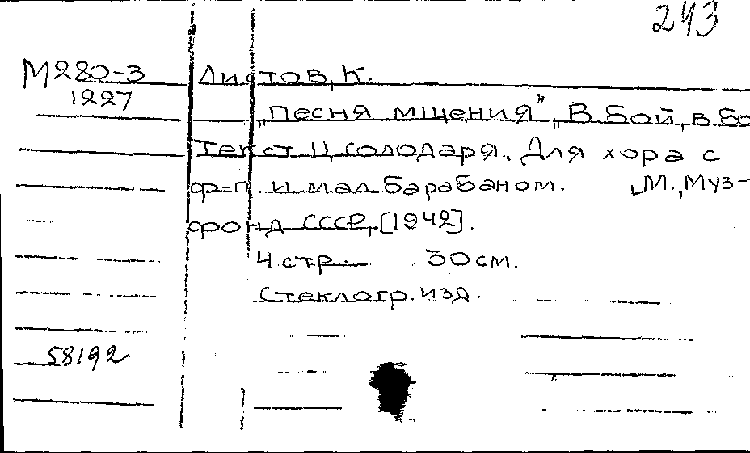 243
М280-3 Листов, К.
1227
„Песня мщения", „В бой, в бо
Текст Ц. Солодаря. Для хора с
ф-п. и мал. барабаном. М., Муз-
фонд СССР, [1942].
4 стр. 30 см.
Стеклогр. изд.
58192